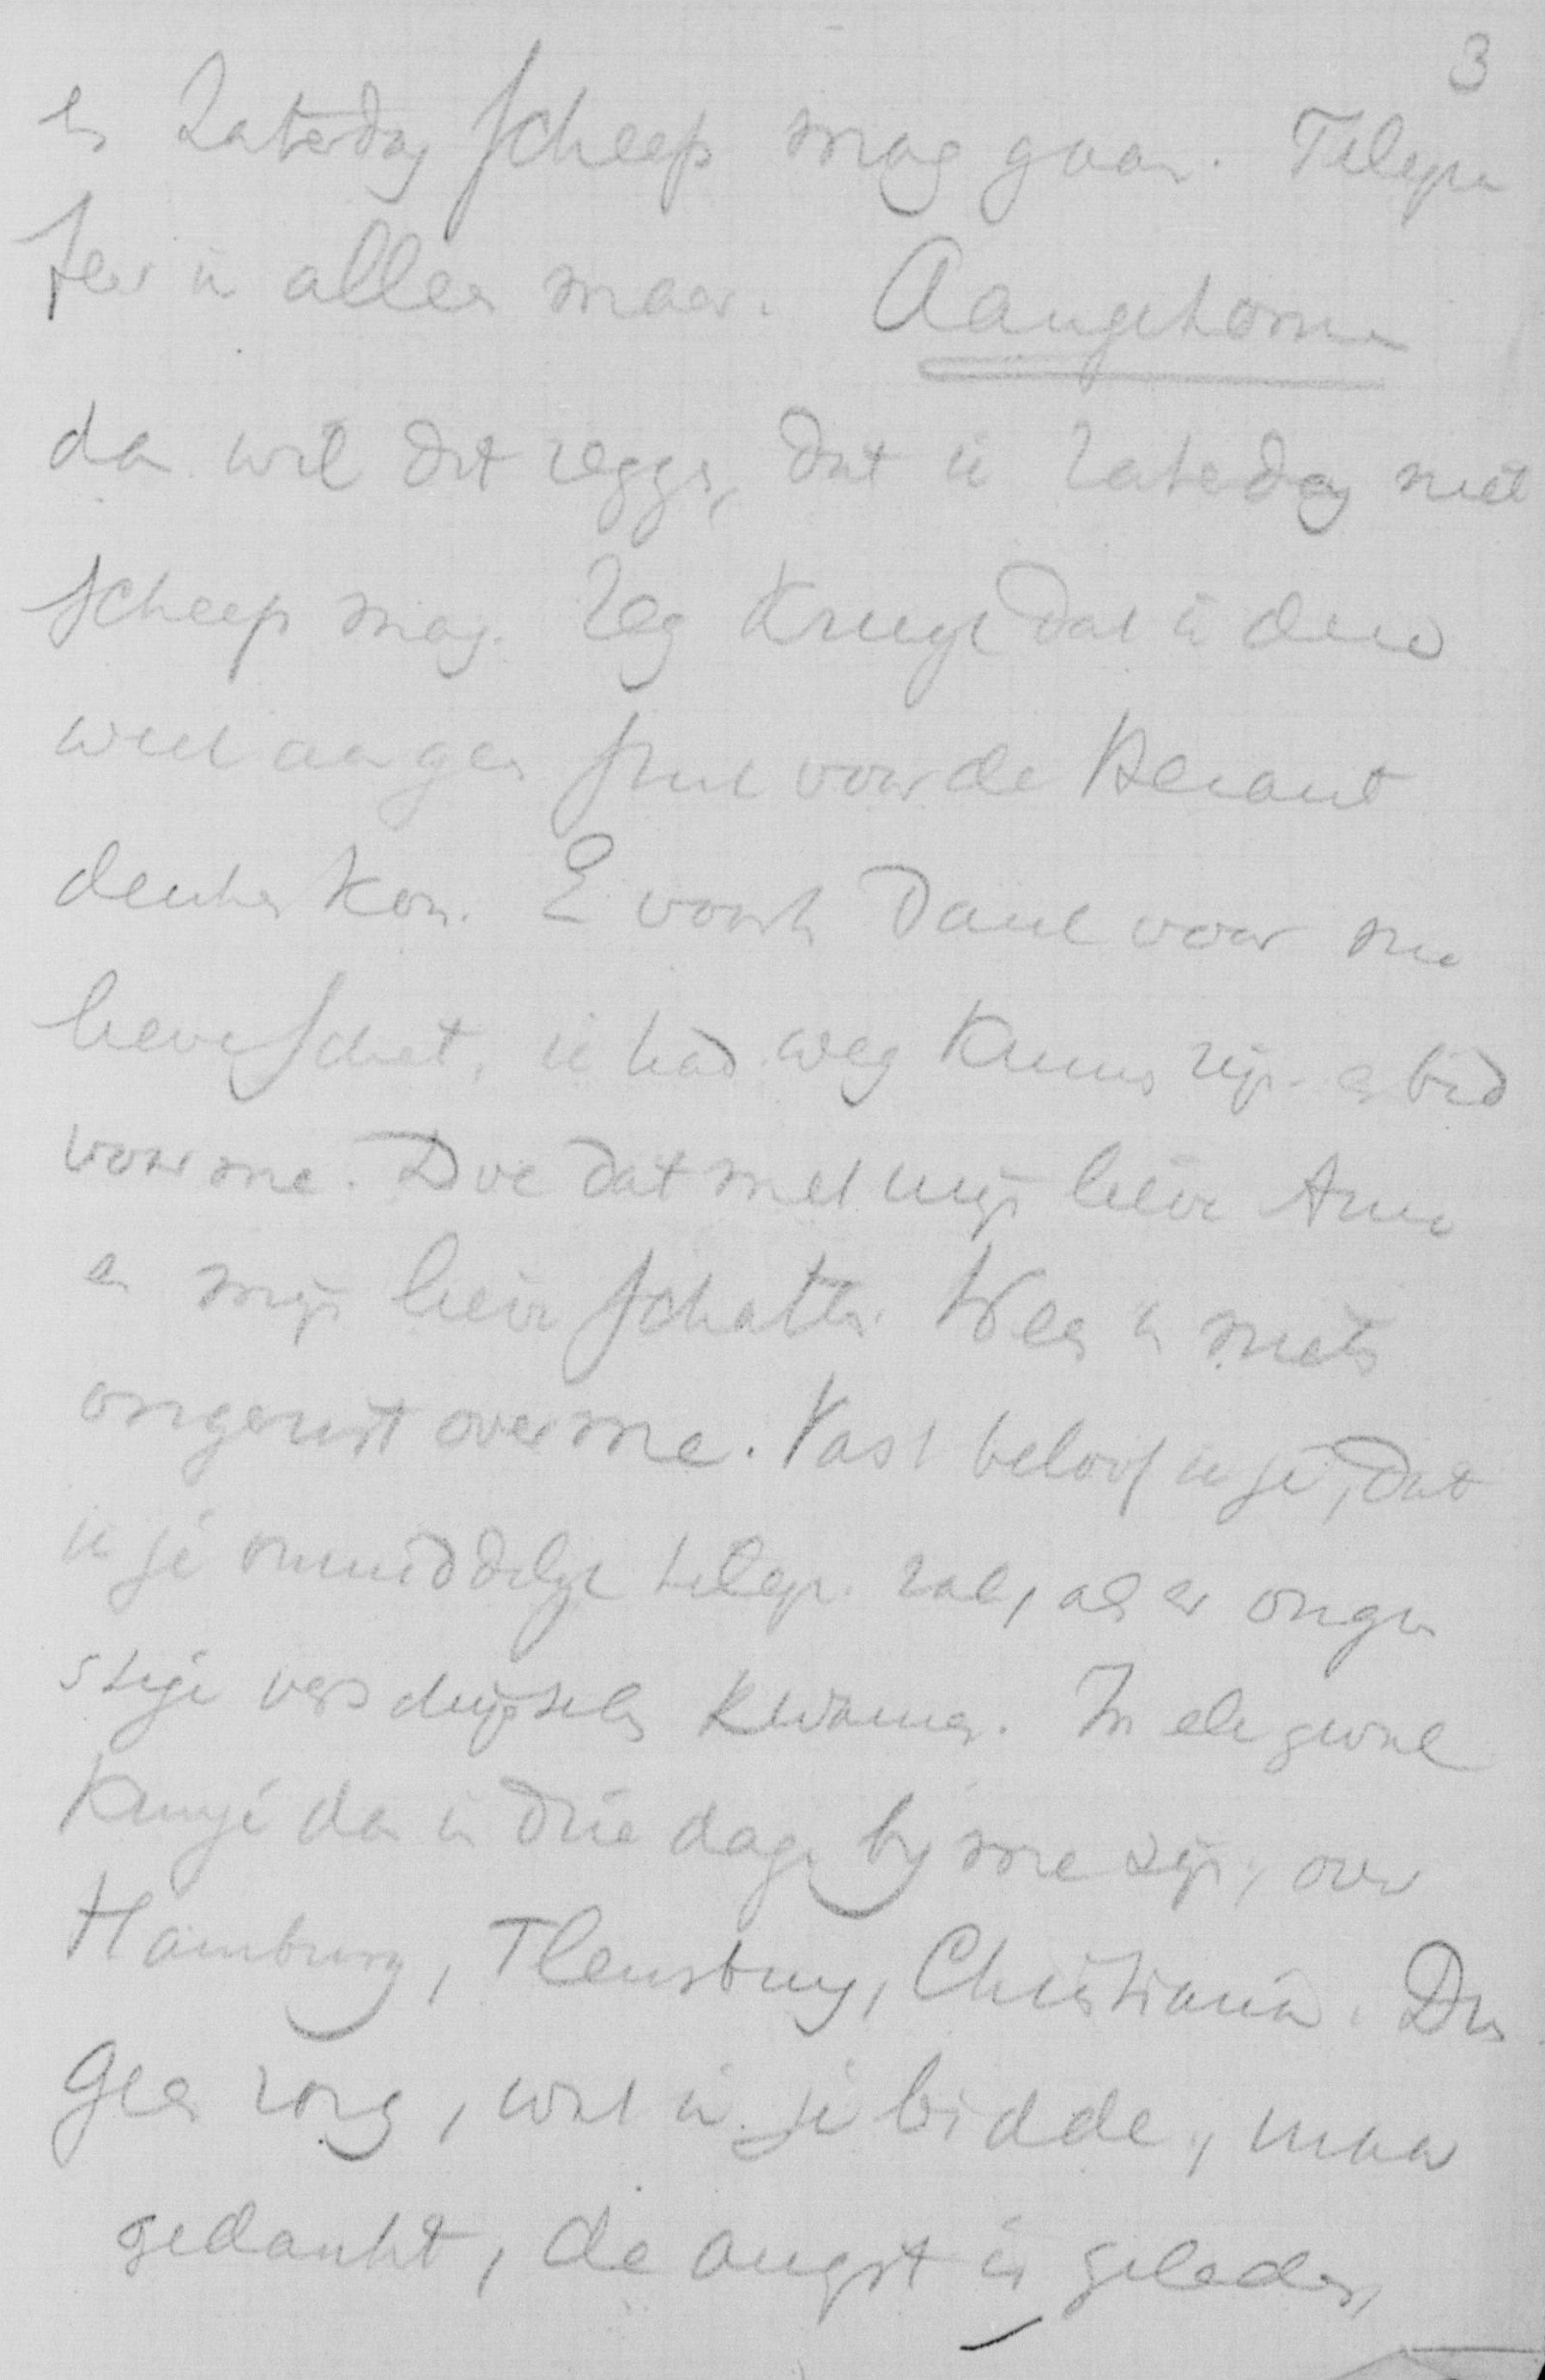 3
en Zaterdag scheep mag gaan. Telegra
feer ik alleen maar: Aangekomen
dan wil dit zeggen, dat ik Zaterdag niet
scheep mag. Zeg Kruyt dat ik deze
week aan geen stuk voor de Heraut
denken kon. En voorts Dank voor me
lieve schat, ik had weg kunnen zijn en bid
voor me. Doe dat met mijn lieve Anna
en mijn lieve schatten. Wees in niets
ongerust over me. Vast beloof ik je, dat
ik je onmiddelijk telegr. zal, als er ongun
stige verschijnselen kwamen. In elk geval
kun je dan in drie dagen bij me zijn, over
Hamburg, Flensburg, Christiania. Dus
Geen zorg, wat ik je bidde, maar
gedankt, de angst is geleden,